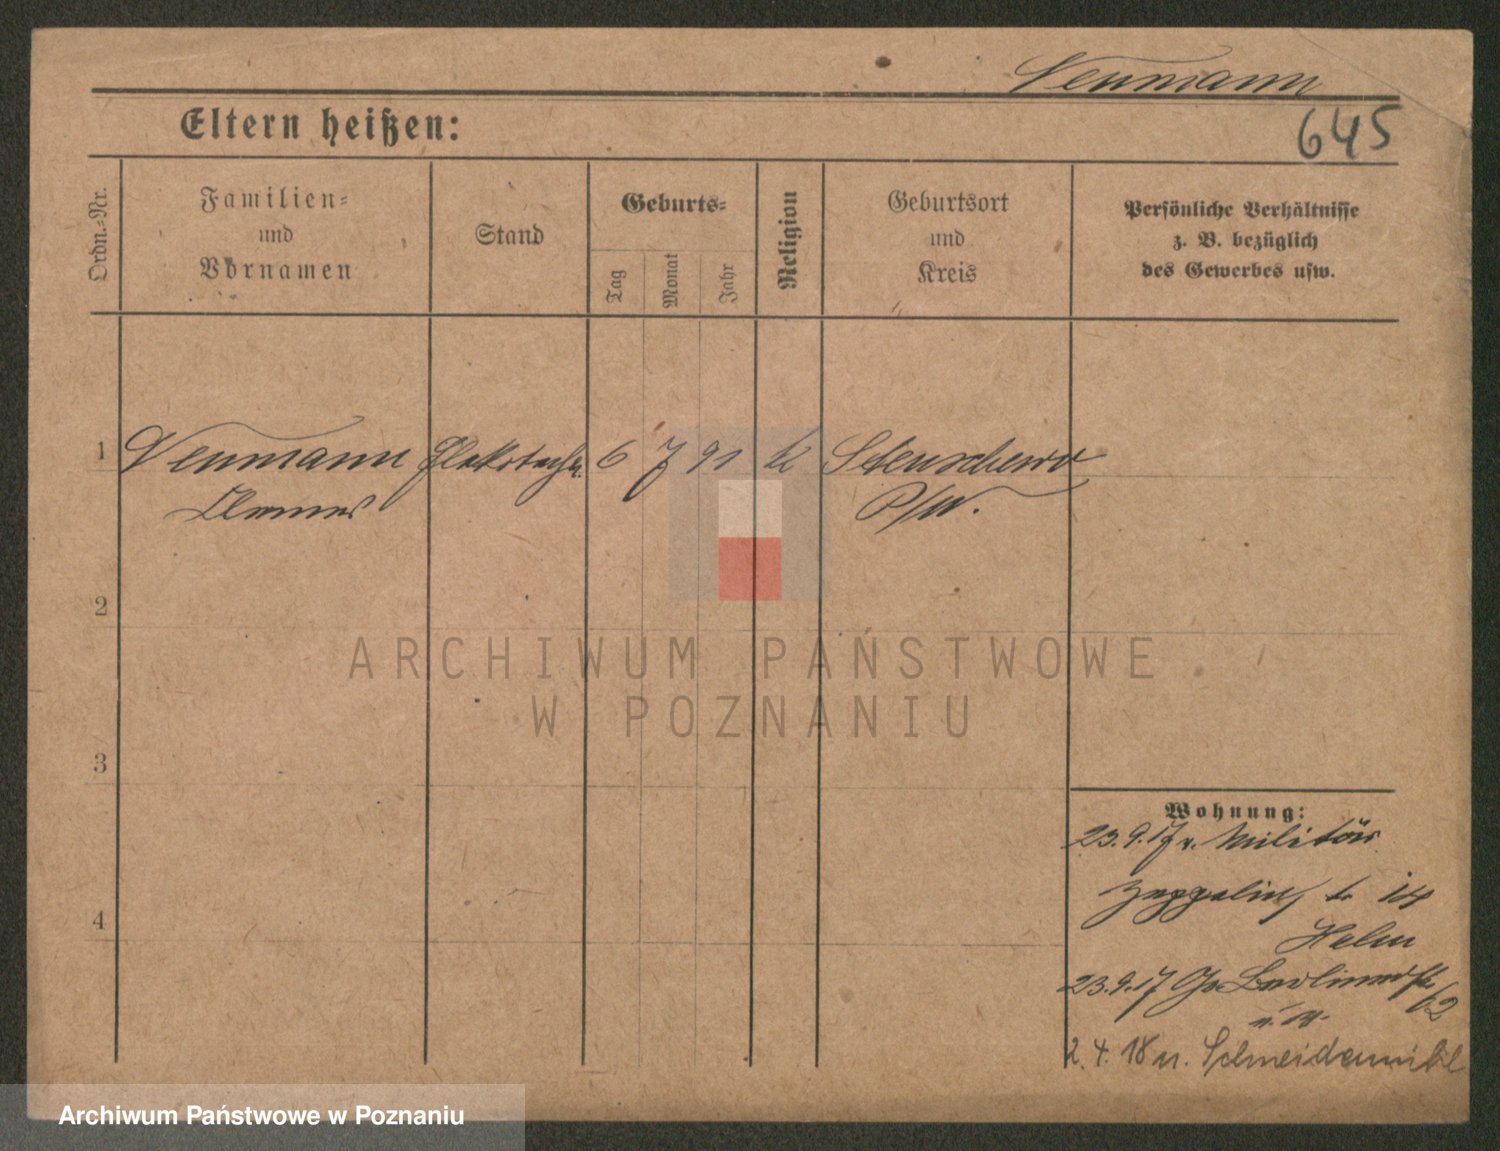 Neumann
Eltern heißen:
645
Ordn.-Nr.
Familien-
und
Vornamen
Stand
Geburts-
Tag
Monat
Jahr
Religion
Geburtsort
und
Kreis
Persönliche Verhältnisse
z. B. bezüglich
des Gewerbes usw.
1
Neumann
6
7
91
k
P/W.
2
ARCHIWUM PAŃSTWOWE
W POZNANIU
3
Wohnung:
23.9.17 v. Militär
4
Zeppelin
Helm
23.9.17
Berlinerstr
62
2.4.18 n. Schneidemühl
Archiwum Państwowe w Poznaniu